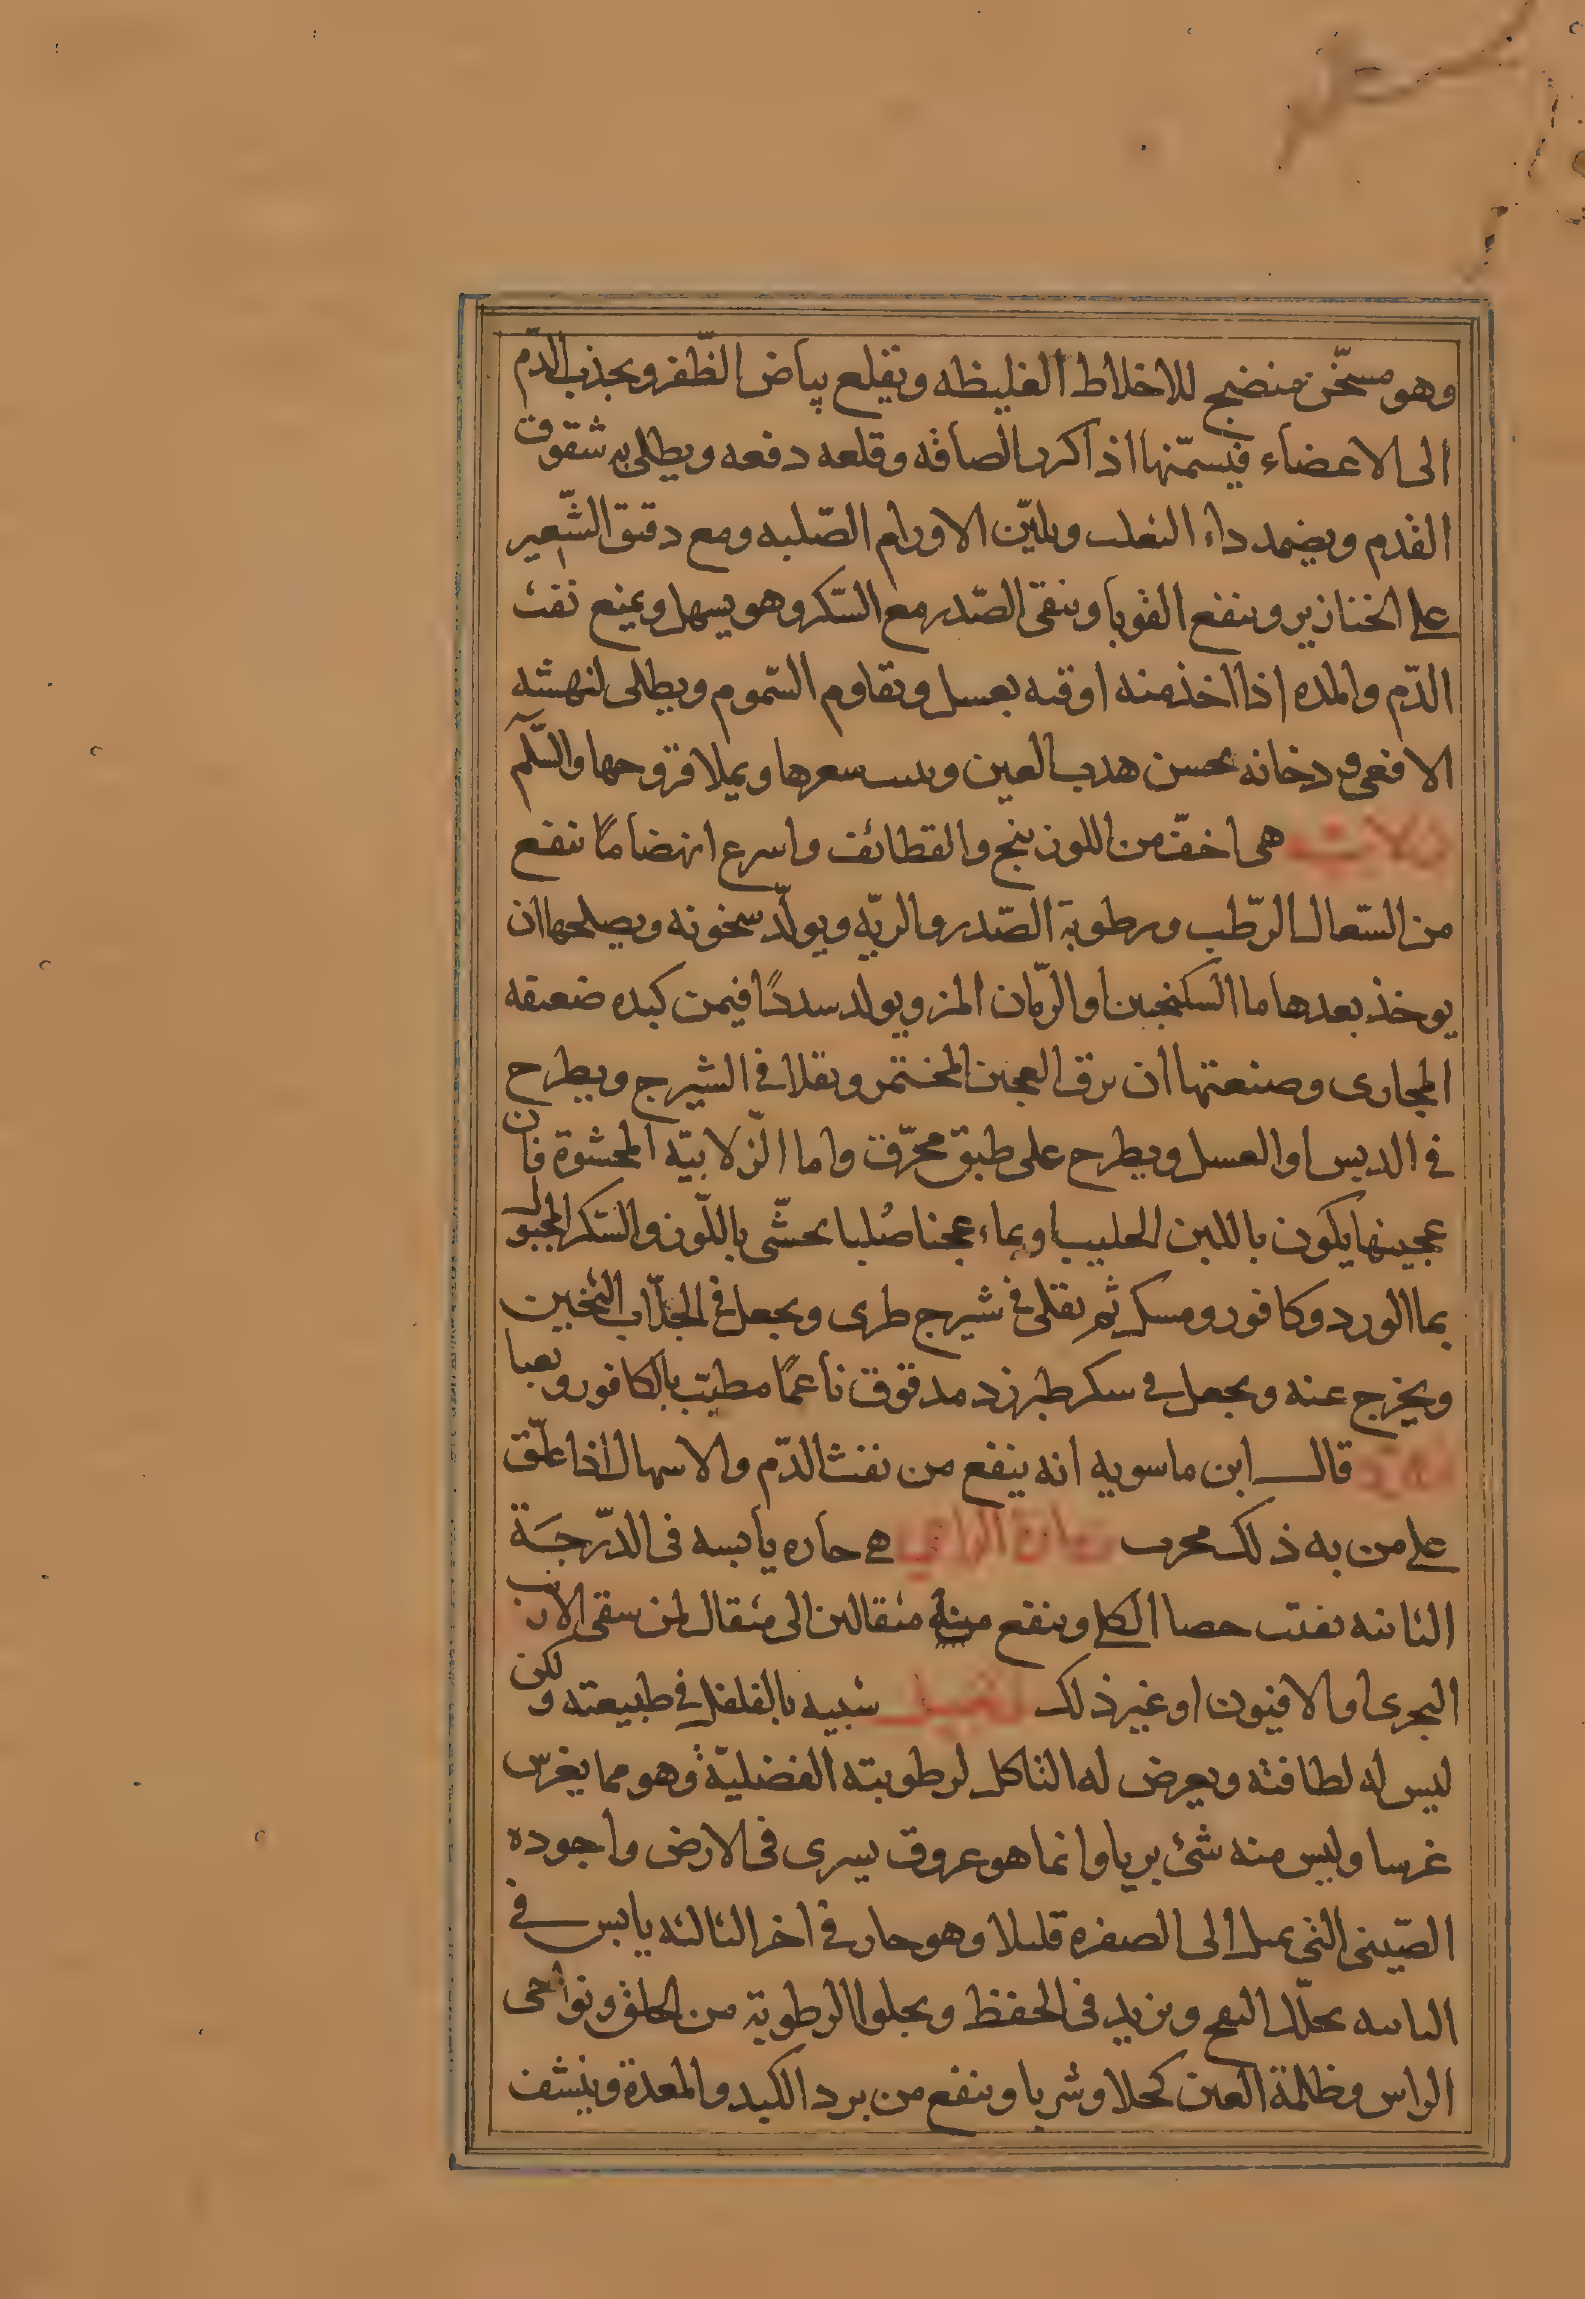 وهو مسخّن منضج للاخلاط الغليظه ويقلع بياض الظّفر ويجذب الدّم
الى الاعضاء فيسمّنها اذا كرر الصاقه وقلعه دفعه ويطلى به شقوق
القدم ويضمد داء الثعلب ويليّن الاورام الصّلبه ومع دقيق الشّعير
على الخنازير وينفع القوبا وينقى الصّدر مع السّكر وهو يسهل ويمنع نفث
الدّم والمده اذا اخذ منه اوقيه بعسل ويقاوم السّموم ويطلى لنهشه
الافعى و دخانه يحسن هدب العين وينبت سعرها ويملا قروحها والسّلم
زلابيه هى اخفّ من اللوزينج والقطائف واسرع انهضاماً ينفع
من السّعال الرّطب ورطوبة الصّدر والريّه ويولّد سخونه ويصلحها ان
يوخذ بعدها ما السكنجبين او الرّمان المز ويولد سدداً فيمن كبده ضعيقه
المجارى وصنعتها ان يرق العجين المختمر ويقلا فى الشيرج ويطرح
فى الدبس او العسل ويطرح على طبق محرّق واما الزّلابيّه المحشوة فان
عجينها يكون باللبن الحليب او بماء عجنا صُلبا يحشّى باللّوز والسّكر المجبول
بما الورد وكافور ومسك ثم يقلى فى شيرج طرى ويجعل فى الجلّاب الثخين
ويخرج عنه ويجعل فى سكر طبرزد مدقوق ناعماً مطيّب بالكافور ويعبا
زمرد قال ابن ماسويه انه ينفع من نفث الدّم والاسهال اذا علّق
على من به ذلك مجرب زمارة الراعي هى حاره يابسه فى الدّرجَة
الثانيه يفتت حصا الكلى وينفع منه مثقالين الى مثقال لمن سقى الارنب
البحرى او الافيون او غير ذلك زنجبيل شبيه بالفلفل فى طبيعته ولكن
ليس له لطافته ويعرض له التاكل لرطوبته الفضليّة وهو مما يغرس
غرسا وليس منه شئ بريا وانما هو عروق يسرى فى الارض واجوده
الصّينى التى يميل الى الصفره قليلا وهو حار فى اخر الثالثه يابس فى
الثانيه يحلّل النفخ ويزيد فى الحفظ ويجلوا الرطوبة من الحلق ونواحى
الراس وظلمة العين كحلا وشربا وينفع من برد الكبد والمعدة وينشف